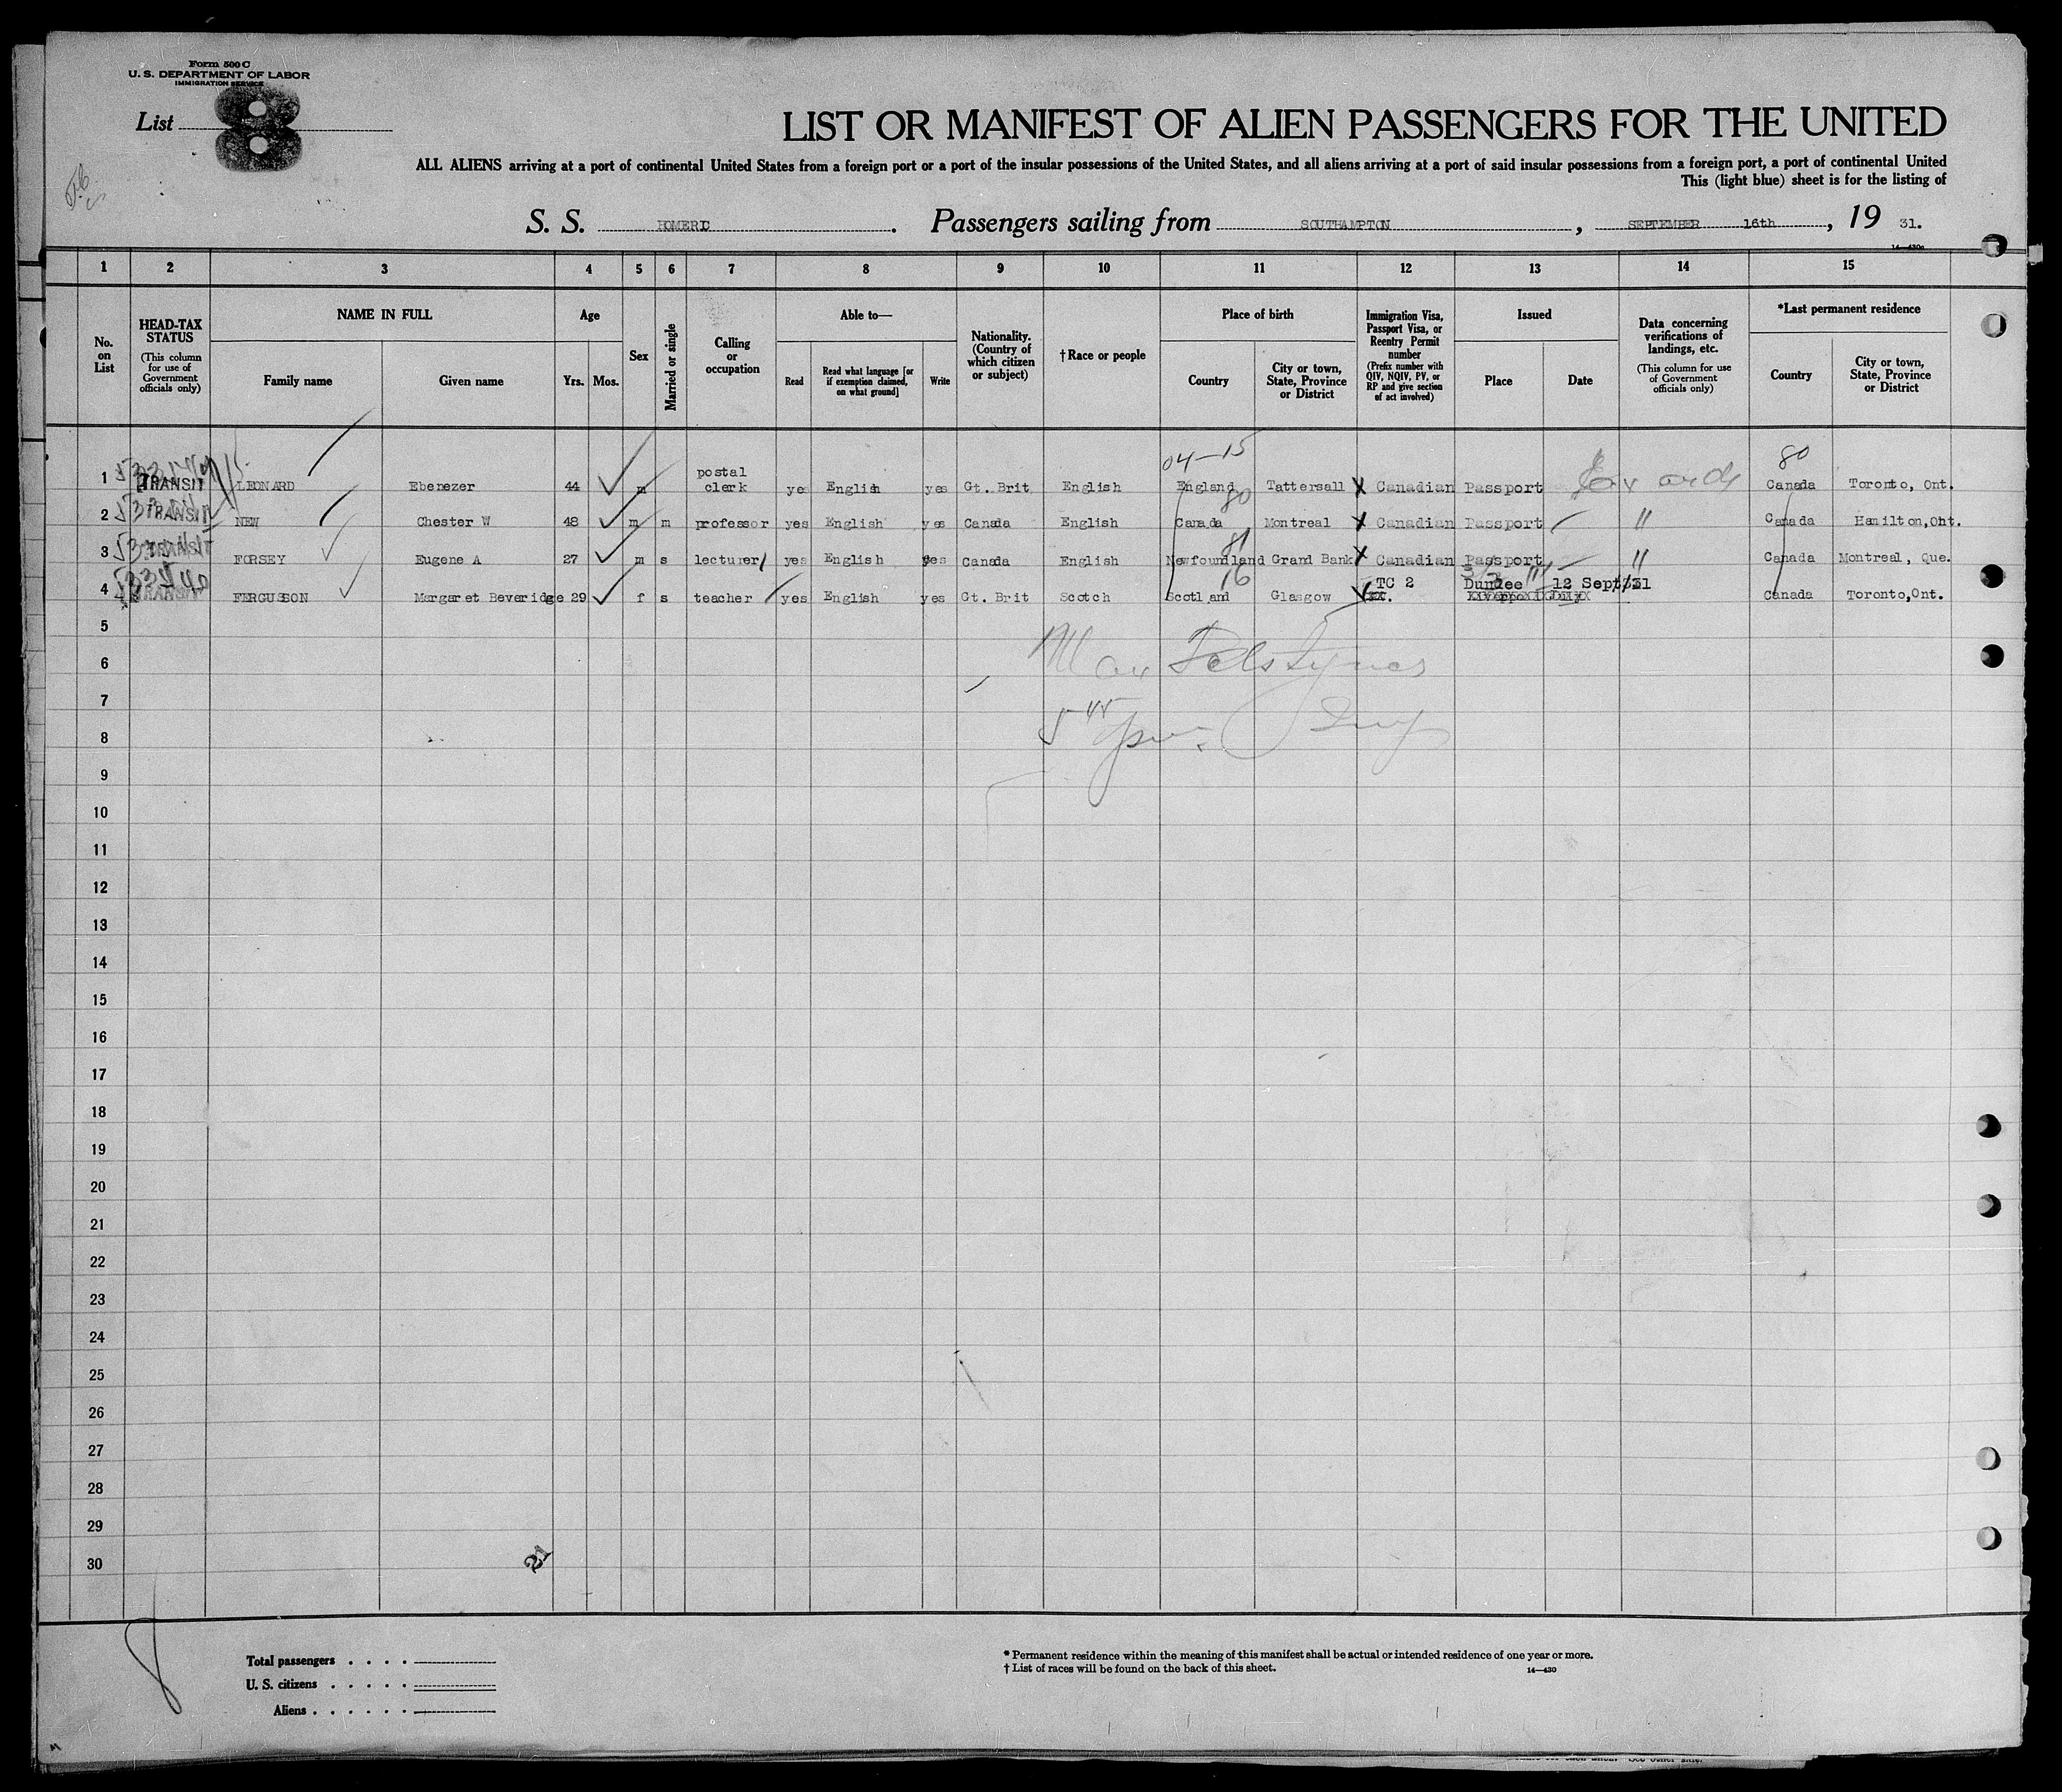 Form 500 C
U. S. DEPARTMENT OF LABOR
IMMIGRATION SERVICE
List 8
LIST OR MANIFEST OF ALIEN PASSENGERS FOR THE UNITED
ALL ALIENS arriving at a port of continental United States from a foreign port or a port of the insular possessions of the United States, and all aliens arriving at a port of said insular possessions from a foreign port, a port of continental United
This (light blue) sheet is for the listing of
S. S. HOMERIC. Passengers sailing from SOUTHAMPTON, SEPTEMBER 16th, 19 31.
14—430a
1 2 3 4 5 6 7 8 9 10 11 12 13 14 15
No. on List
HEAD-TAX STATUS (This column for use of Government officials only)
NAME IN FULL
Family name
Given name
Age
Yrs.
Mos.
Sex
Married or single
Calling or occupation
Able to—
Read
Read what language [or if exemption claimed, on what ground]
Write
Nationality. (Country of which citizen or subject)
† Race or people
Place of birth
Country
City or town, State, Province or District
Immigration Visa, Passport Visa, or Reentry Permit number (Prefix number with QIV, NQIV, PV, or RP and give section of act involved)
Issued
Place
Date
Data concerning verifications of landings, etc. (This column for use of Government officials only)
*Last permanent residence
Country
City or town, State, Province or District
04-15 80
1 TRANSIT LEONARD Ebenezer 44 m postal clerk ye English yes Gt. Brit English England Tattersall X Canadian Passport Canada Toronto, Ont.
80
2 TRANSIT NEW Chester W 48 m m professor yes English yes Canada English Canada Montreal X Canadian Passport " Canada Hamilton,Ont.
81
3 TRANSIT FORSEY Eugene A 27 m s lecturer yes English yes Canada English Newfoundland Grand Bank X Canadian Passport " Canada Montreal, Que.
16
4 TRANSIT FERGUSSON Margaret Beveridge 29 f s teacher yes English yes Gt. Brit Scotch Scotland Glasgow TC 2 Dundee 12 Sept/31 Canada Toronto,Ont.
5
6
7
8
9
10
11
12
13
14
15
16
17
18
19
20
21
22
23
24
25
26
27
28
29
30
21
Total passengers . . . .
U. S. citizens . . . . .
Aliens . . . . . .
* Permanent residence within the meaning of this manifest shall be actual or intended residence of one year or more.
† List of races will be found on the back of this sheet.
14—430